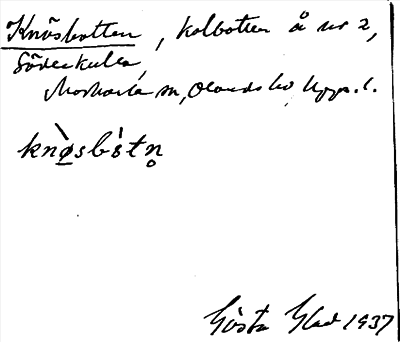 Knösbotten, kolbotten å nr 2,
Söderkulla,
Morkarla sn, Olands hd, Upps. l.
knø̀sbs̀tn̥
Gösta Glad 1937